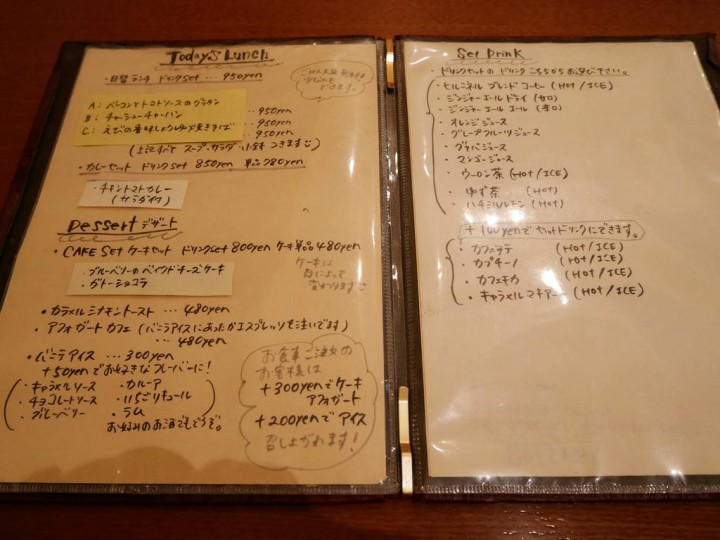 Today's Lunch
・日替ランチ ドリンクset … 950yen
ごはん大盛
A: ベーコンとトマトソースのグラタン
B: チャーシューチャーハン
C: えびの香味しょうゆ焼きそば
950yen
950yen
950yen
(上記すべて スープ・サラダ・小鉢 つきます)
・カレーセット ドリンクset 850yen 単品780yen
・チキントマトカレー
(サラダ付)
Dessert デザート
・CAKE SET ケーキセット ドリンクset 800yen ケーキ単品480yen
・ブルーベリーのベイクドチーズケーキ
・ガトーショコラ
ケーキは
日によって
変わります
・カラメルシナモントースト … 480yen
・アフォガートカフェ (バニラアイスにあったかエスプレッソを注いでます)
… 480yen
・バニラアイス … 300yen
+50yenでお好きなフレーバーに!
・キャラメルソース ・カルーア
・チョコレートソース ・いちごリキュール
・ブルーベリー ・ラム
お好みのお酒でもどうぞ。
お食事ご注文の
お客様は
+300yenでケーキ
アフォガート
+200yenでアイス
召し上がれます!
Set Drink
・ドリンクセットの ドリンク こちらからお選び下さい。
・ヒルミネル ブレンド コーヒー (HOT/ICE)
・ジンジャーエール ドライ (甘口)
・ジンジャーエール エール (辛口)
・オレンジジュース
・グレープフルーツジュース
・グァバジュース
・マンゴージュース
・ウーロン茶 (HOT/ICE)
・ゆず茶 (HOT)
・ハチミツレモン (HOT)
+100yenで セットドリンクにできます。
・カフェラテ (HOT/ICE)
・カプチーノ (HOT/ICE)
・カフェモカ (HOT/ICE)
・キャラメルマキアート (HOT/ICE)